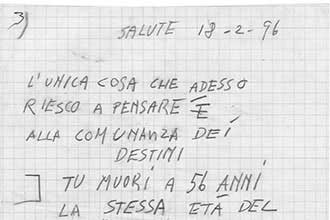 3)
SALUTE 18-2-96
L'UNICA COSA CHE ADESSO
RIESCO A PENSARE È
ALLA COMUNANZA DEI
DESTINI
TU MUORI A 56 ANNI
LA STESSA ETÀ DEL